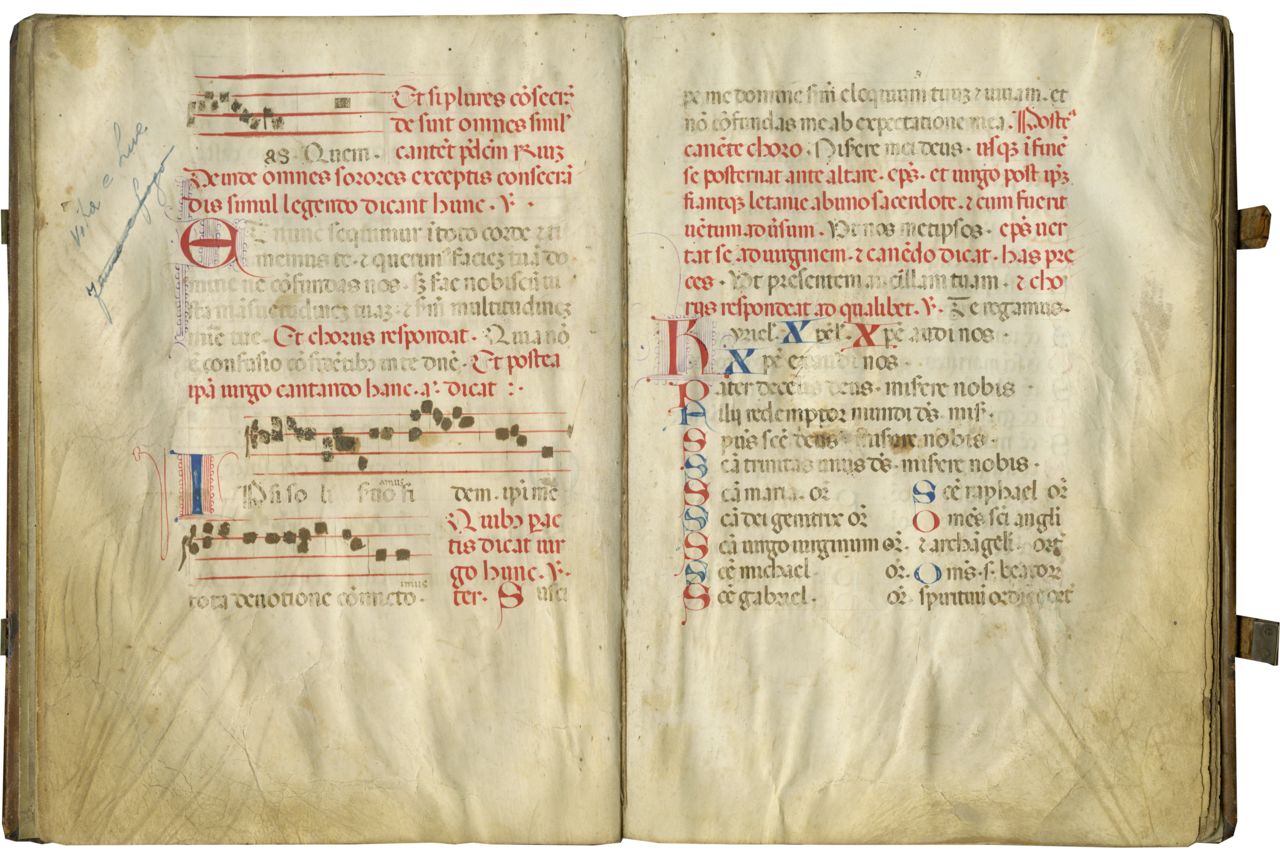 Et si plures cōsecrā
de sint omnes simil'
as. Quem. cantēt p̄dc̄m
Deinde omnes sorores exceptis consecrā
dis simul legendo dicant hunc. ℣.
Et nunc seqimur ī toto corde ⁊ ti
memus te. ⁊ querim' faciez tuā do
mine ne cōfundas nos. sꝫ fac nobiscū iu
sta māsuetudinez tuaꝫ. ⁊ sm̄ multitudinez
mīe tue. Et chorus respondat. Quia nō
ē confusio cōfidētibꝫ in te dn̄e. Et postea
ip̄a uirgo cantando hanc. a. dicat :
Ipsi so li suo fi dem. ip̄i me
amus
Quibꝫ ꝑac
tis dicat uir
go hunc. ℣.
imus
tota deuotione cōmicto. ter. Susci
pe me domine sm̄ eloquium tuuꝫ ⁊ uiuam. et
nō cōfundas me ab expectatione mea. Postea
canēte choro. Misere mei deus. usqꝫ ī finē
se posternat ante altare. ep̄s. et uirgo post ip̄ꝫ
fiantqꝫ letanie ab uno sacerdote. ⁊ cum fuerit
uētum ad ūsum. Ut nos metipsos. ep̄s uer
tat se ad uirginem. ⁊ canēdo dicat. has pre
ces. Ut presentem ancillam tuam. ⁊ cho
rus respondeat ad qualibet. ℣. Te rogamus.
Kyriel'. Xp̄el'. Xp̄e audi nos.
Xp̄e exaudi nos.
Pater de celis deus. misere nobis
Filij redemptor mundi ds̄. mis̄.
Sp̄us sc̄e deus. misere nobis.
Sc̄a trinitas unus ds̄. misere nobis.
Sc̄a maria. or̄
Sc̄a dei genitrix or̄
Sc̄a uirgo uirginum or̄.
Sc̄e michael. or̄.
Sc̄e gabriel. or̄.
Sc̄e raphael or̄
Omēs sc̄i angli
⁊ archāgeli. or̄
Omīs. s. beator̄
spirituū ordīes or̄